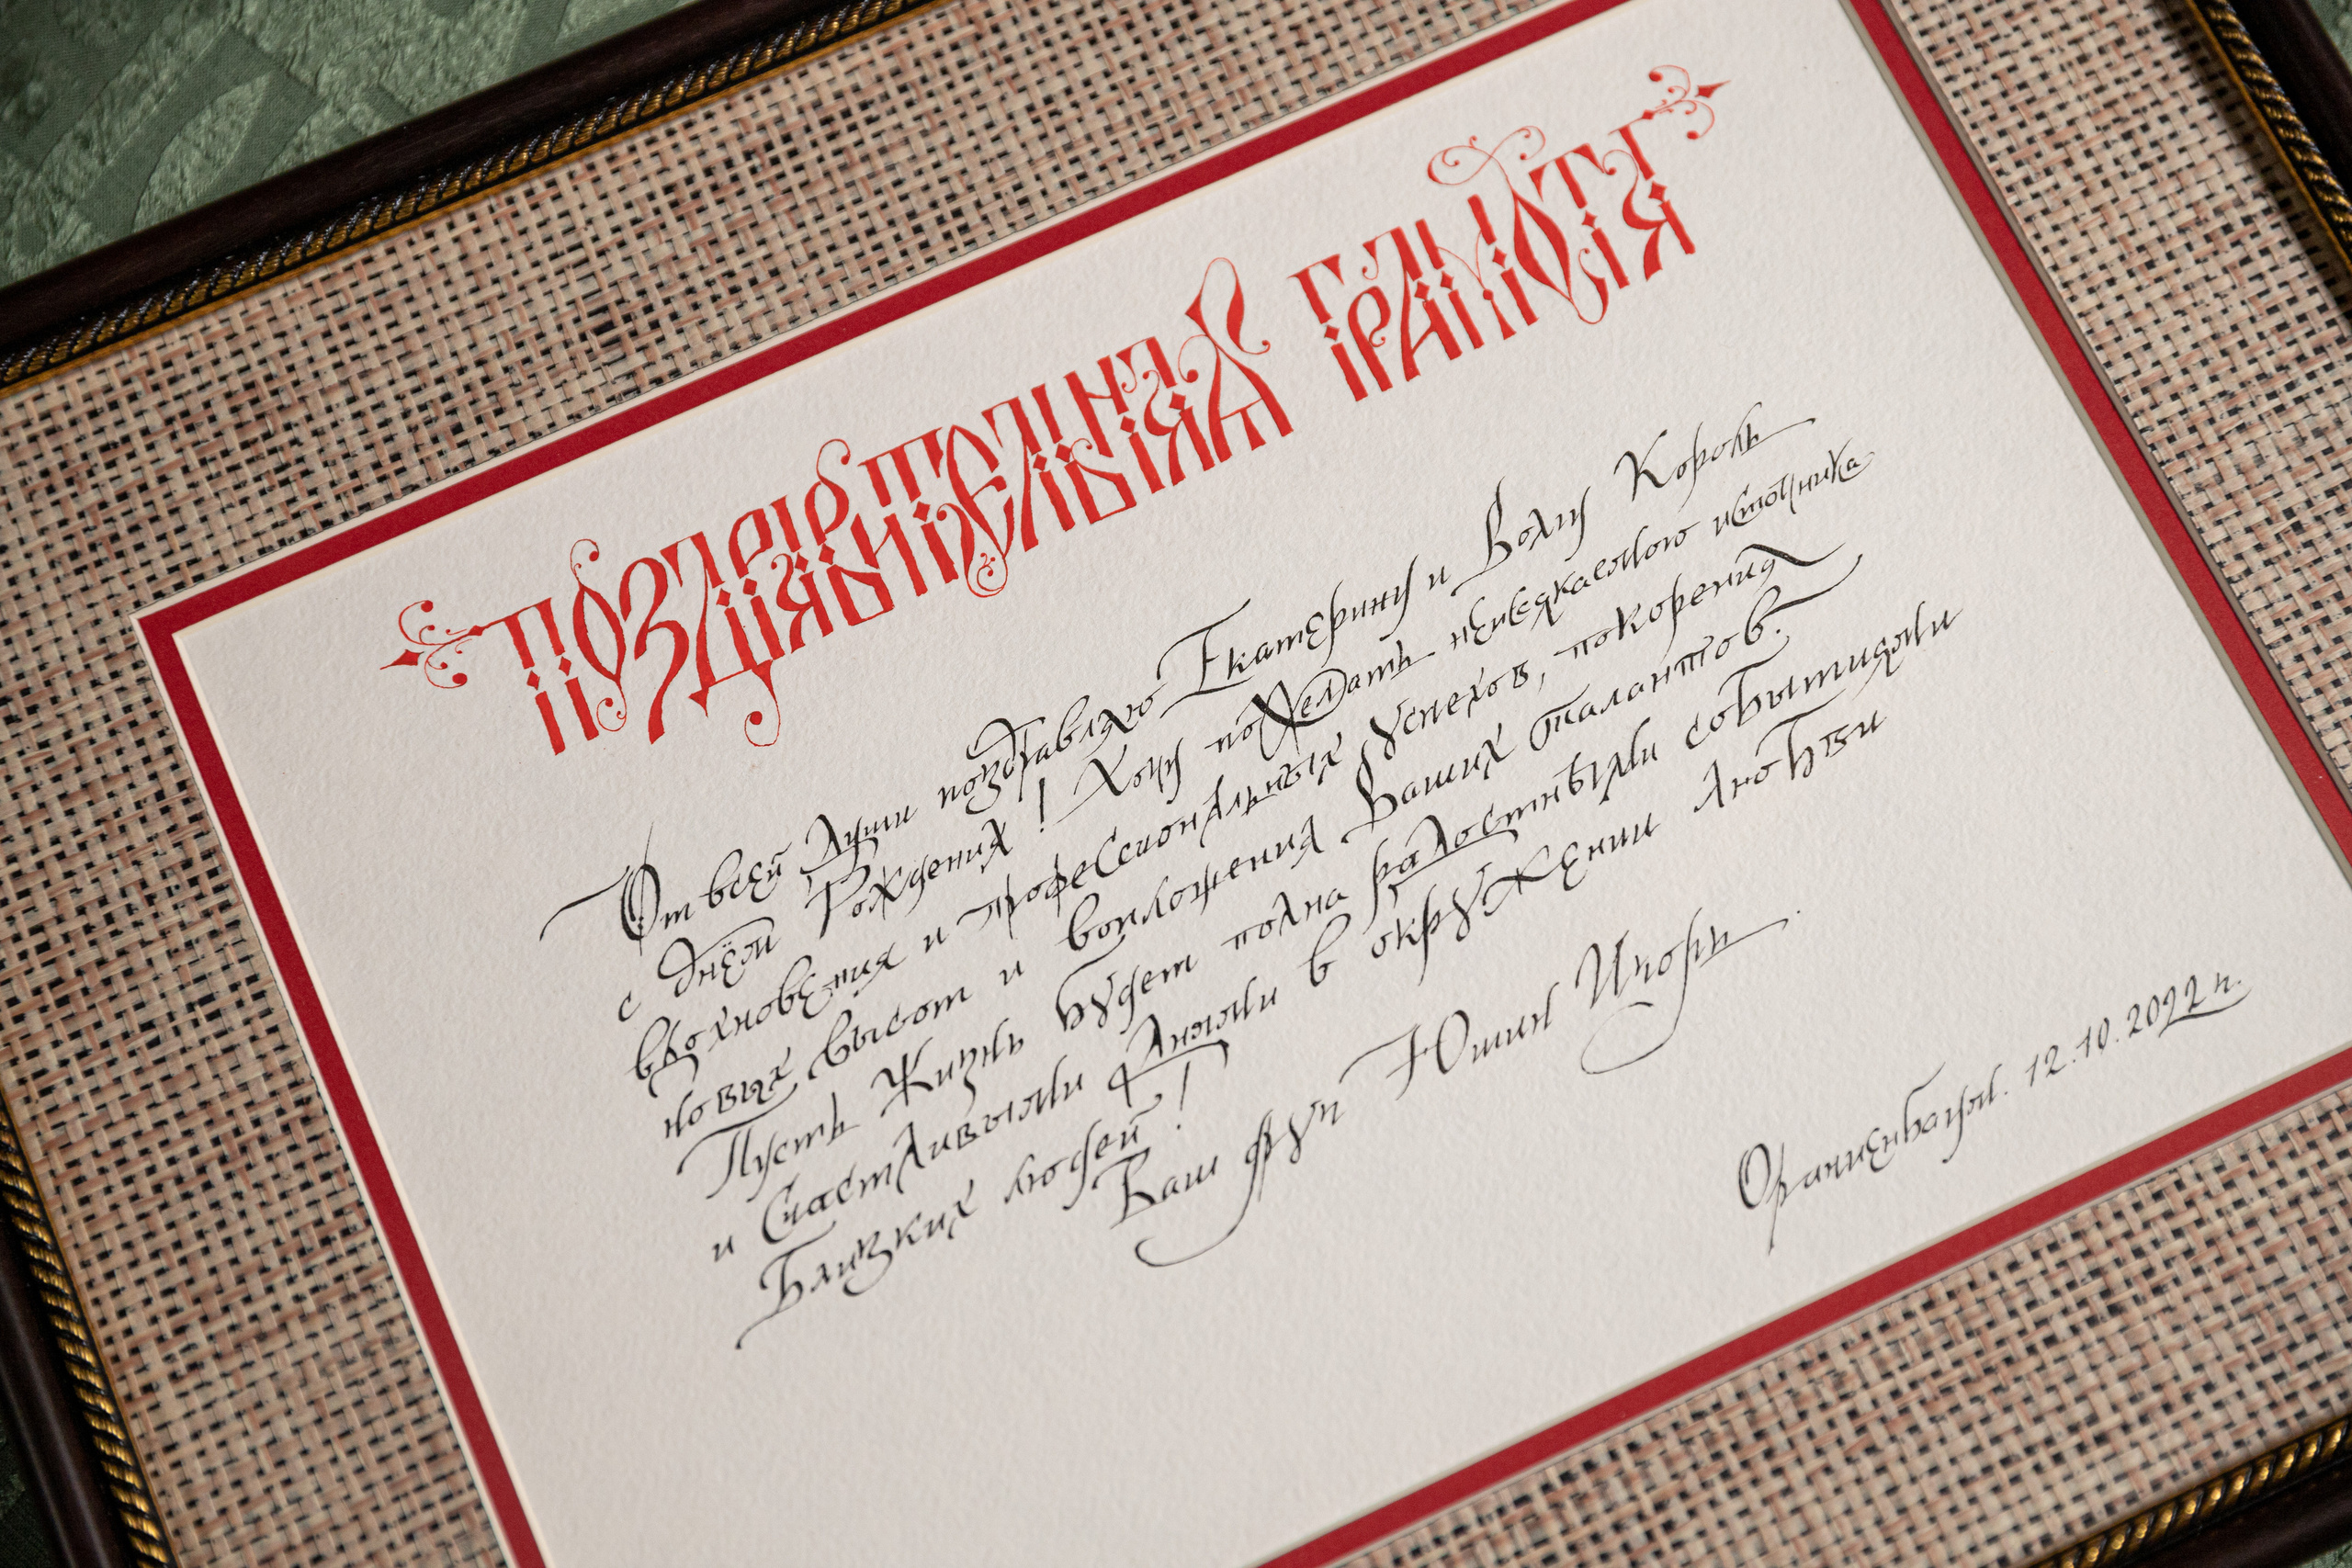 ПОЗДРАВИТЕЛЬНАЯ ГРАМОТА
От всей Души поздравляю Екатерину и Волну Король
с днём Рождения! Хочу пожелать неиссякаемого источника
вдохновения и профессиональных успехов, покорения
новых высот и воплощения Ваших талантов.
Пусть Жизнь будет полна радостными событиями
и Счастливыми Днями в окружении любви
Близких людей!
Ваш друг Юшин Игорь.
Ораниенбаум. 12.10.2022 г.